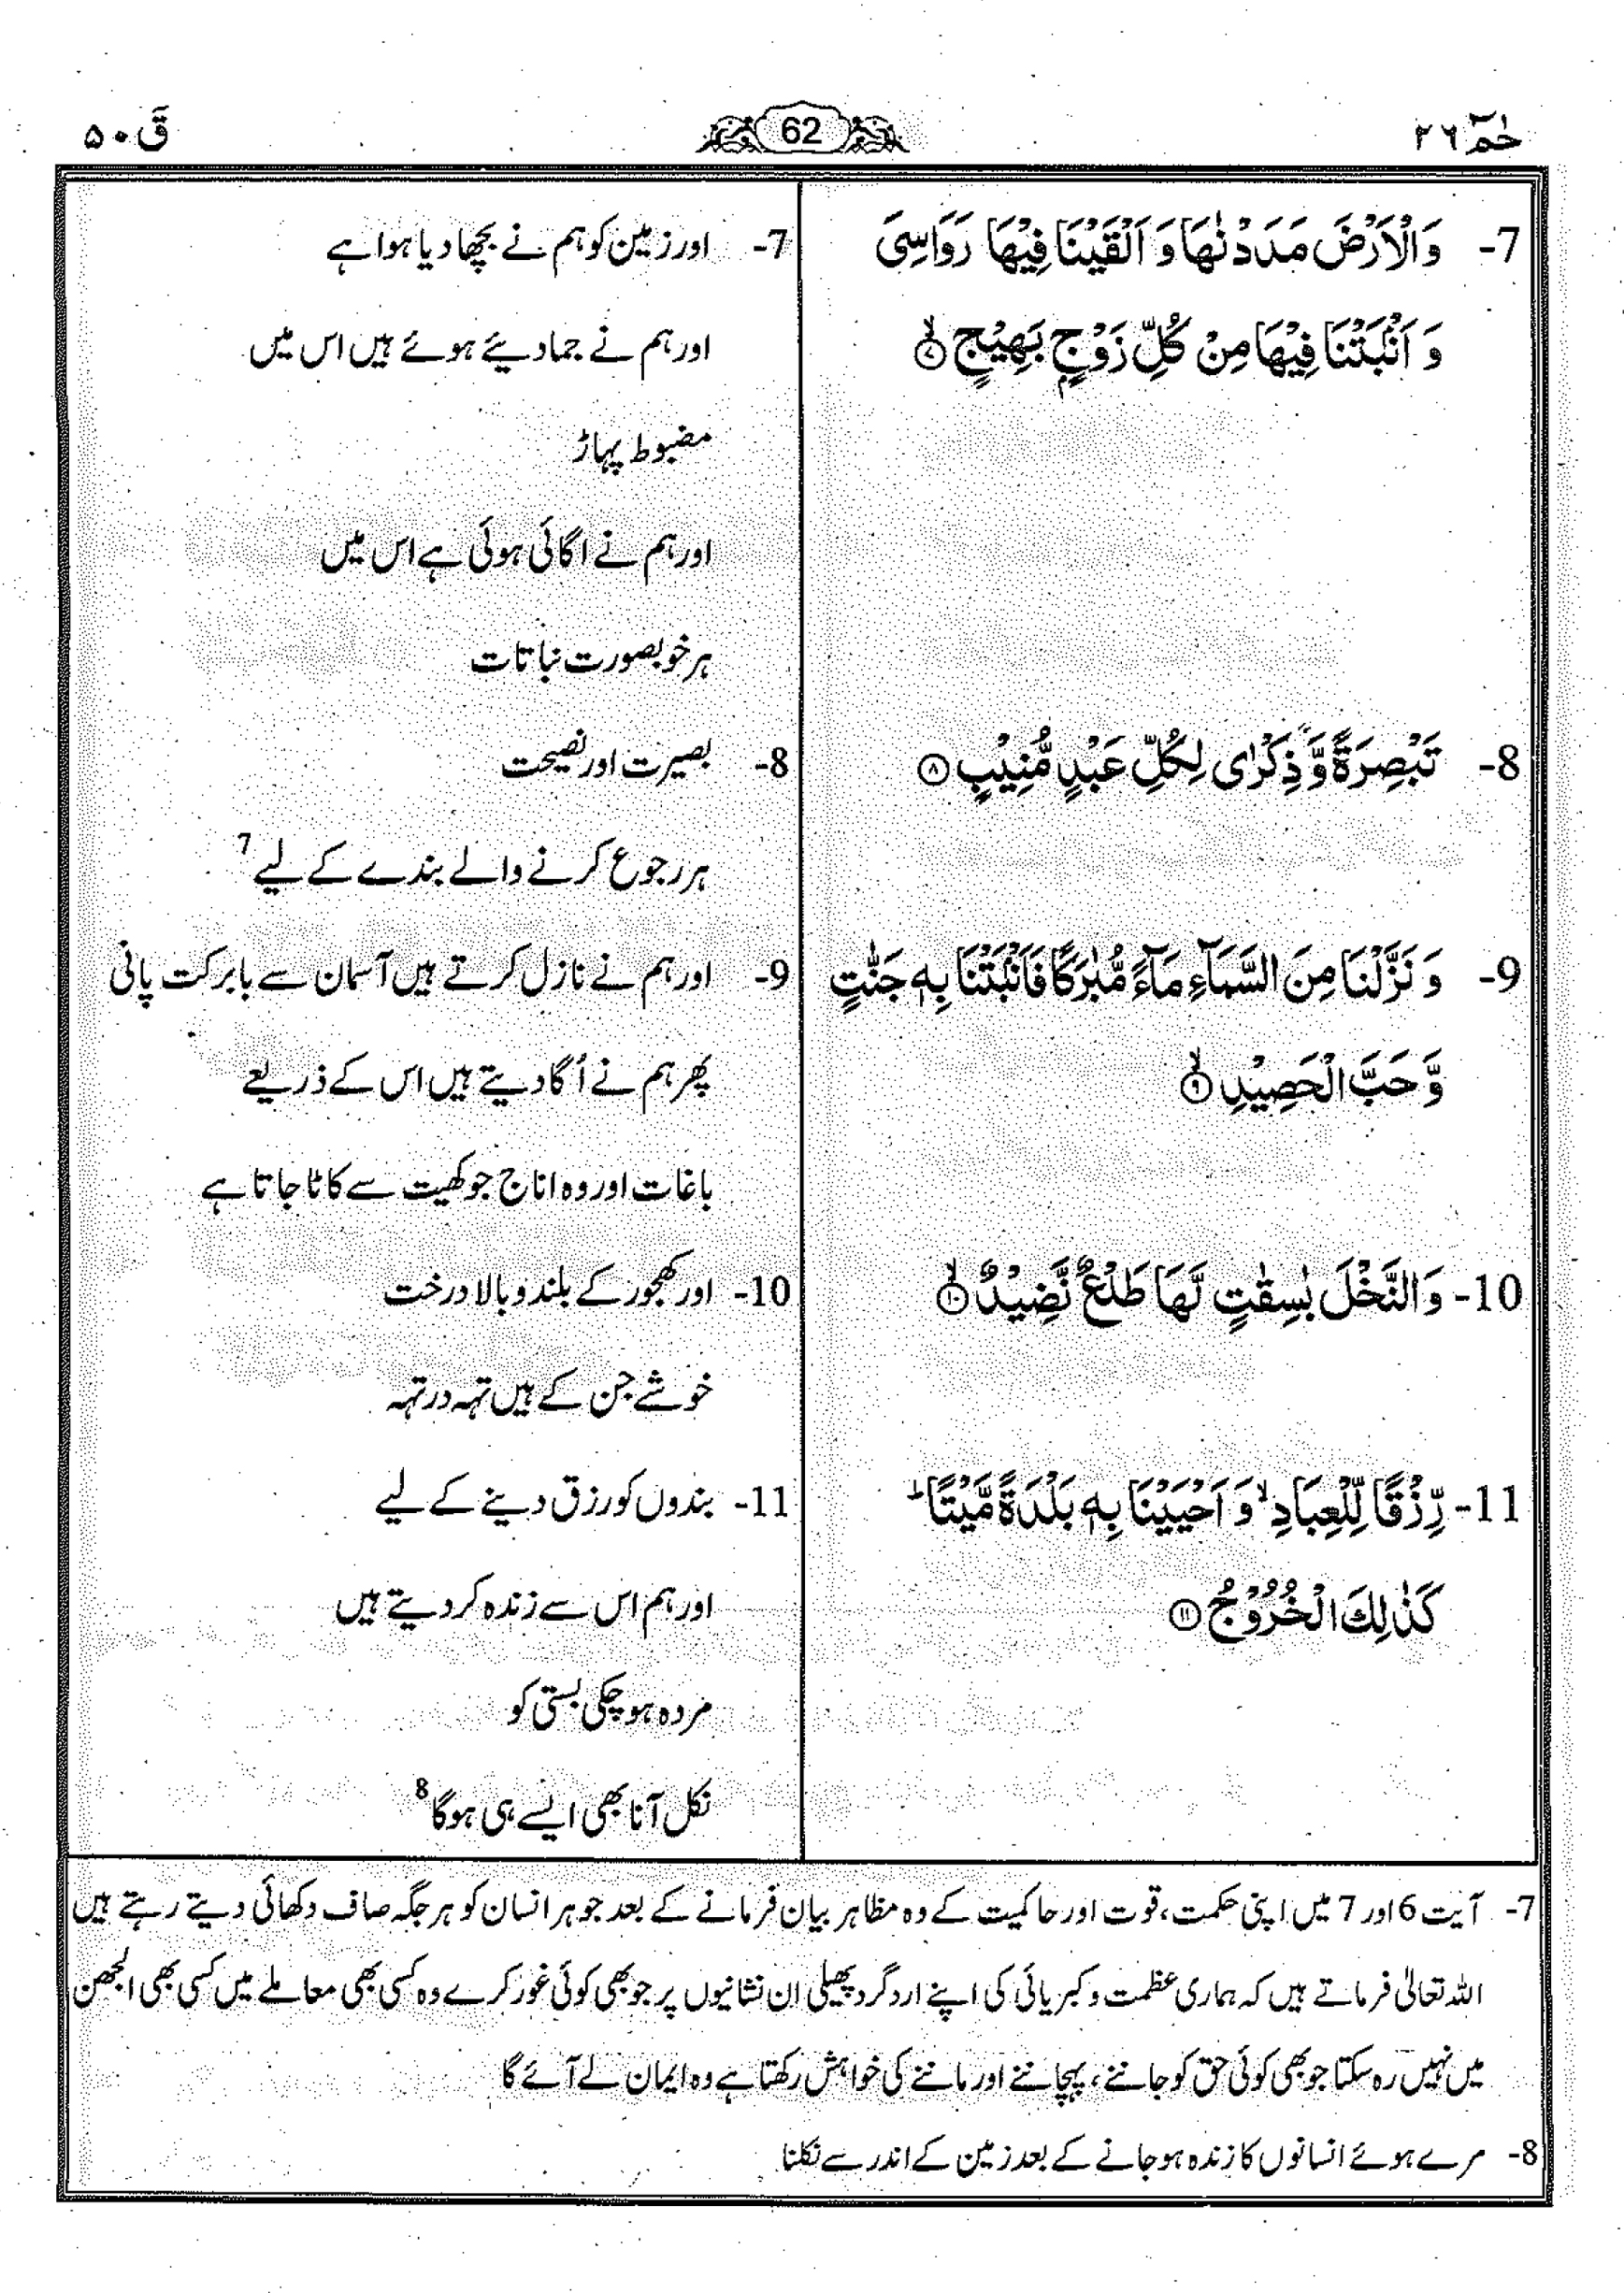 حٰمٓ ٢٦
62
قٓ ۵۰
7- وَالْاَرْضَ مَدَدْنٰهَا وَ اَلْقَيْنَا فِيْهَا رَوَاسِىَ
وَ اَنْۢبَتْنَا فِيْهَا مِنْ كُلِّ زَوْجٍۭ بَهِيْجٍۙ ۷
8- تَبْصِرَةً وَّ ذِكْرٰى لِكُلِّ عَبْدٍ مُّنِيْبٍ ۸
9- وَ نَزَّلْنَا مِنَ السَّمَآءِ مَآءً مُّبٰرَكًا فَاَنْۢبَتْنَا بِهٖ جَنّٰتٍ
وَّ حَبَّ الْحَصِيْدِۙ ۹
10- وَ النَّخْلَ بٰسِقٰتٍ لَّهَا طَلْعٌ نَّضِيْدٌۙ ۱۰
11- رِّزْقًا لِّلْعِبَادِۙ وَ اَحْيَيْنَا بِهٖ بَلْدَةً مَّيْتًاؕ
كَذٰلِكَ الْخُرُوْجُ ۱۱
7- اور زمین کو ہم نے بچھا دیا ہوا ہے
اور ہم نے جما دیئے ہوئے ہیں اس میں
مضبوط پہاڑ
اور ہم نے اگائی ہوئی ہے اس میں
ہر خوبصورت نباتات
8- بصیرت اور نصیحت
ہر رجوع کرنے والے بندے کے لیے 7
9- اور ہم نے نازل کرتے ہیں آسمان سے بابرکت پانی
پھر ہم نے اُگا دیتے ہیں اس کے ذریعے
باغات اور وہ اناج جو کھیت سے کاٹا جاتا ہے
10- اور کھجور کے بلند و بالا درخت
خوشے جن کے ہیں تہہ در تہہ
11- بندوں کو رزق دینے کے لیے
اور ہم اس سے زندہ کر دیتے ہیں
مردہ ہو چکی بستی کو
نکل آنا بھی ایسے ہی ہوگا 8
7- آیت 6 اور 7 میں اپنی حکمت، قوت اور حاکمیت کے وہ مظاہر بیان فرمانے کے بعد جو ہر انسان کو ہر جگہ صاف دکھائی دیتے رہتے ہیں
اللہ تعالیٰ فرماتے ہیں کہ ہماری عظمت و کبریائی کی اپنے ارد گرد پھیلی ان نشانیوں پر جو بھی کوئی غور کرے وہ کسی بھی معاملے میں کسی بھی الجھن
میں نہیں رہ سکتا جو بھی کوئی حق کو جاننے، پہچاننے اور ماننے کی خواہش رکھتا ہے وہ ایمان لے آئے گا
8- مرے ہوئے انسانوں کا زندہ ہو جانے کے بعد زمین کے اندر سے نکلنا